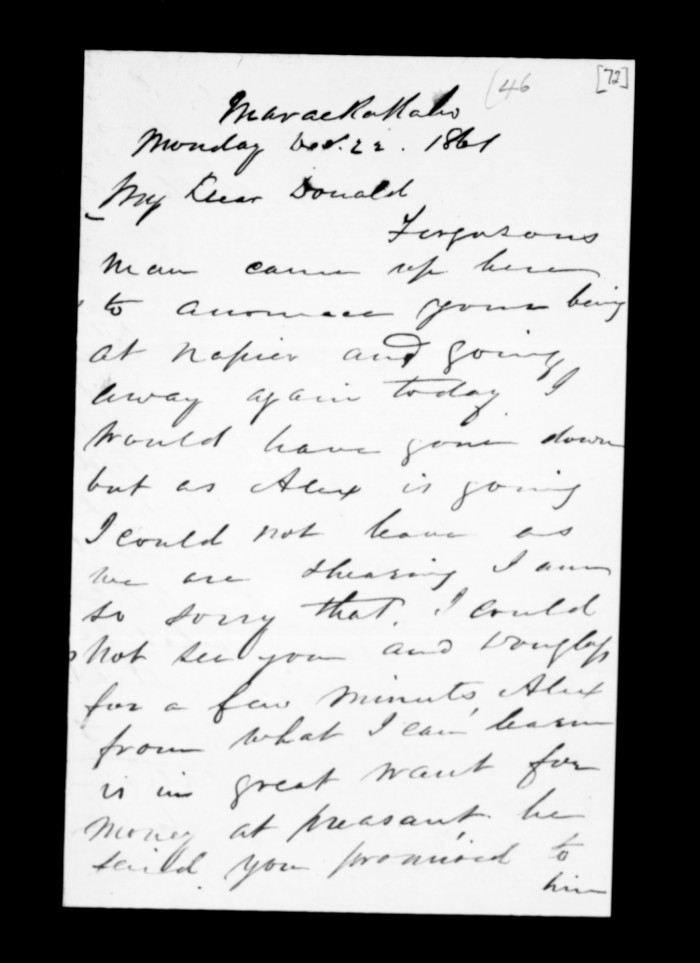 (46 [72]
Maraekakaho
Monday 22. 1861
My Dear Donald
Fergusons
Man came up here
to announce your being
at Napier and going
away again today I
would have gone down
but as Alex is going
I could not leave as
we are shearing I am
so sorry that I could
not see you and Douglass
for a few minuts, Alex
from what I can learn
is in great want for
money at preasant. he
said you promised to
him